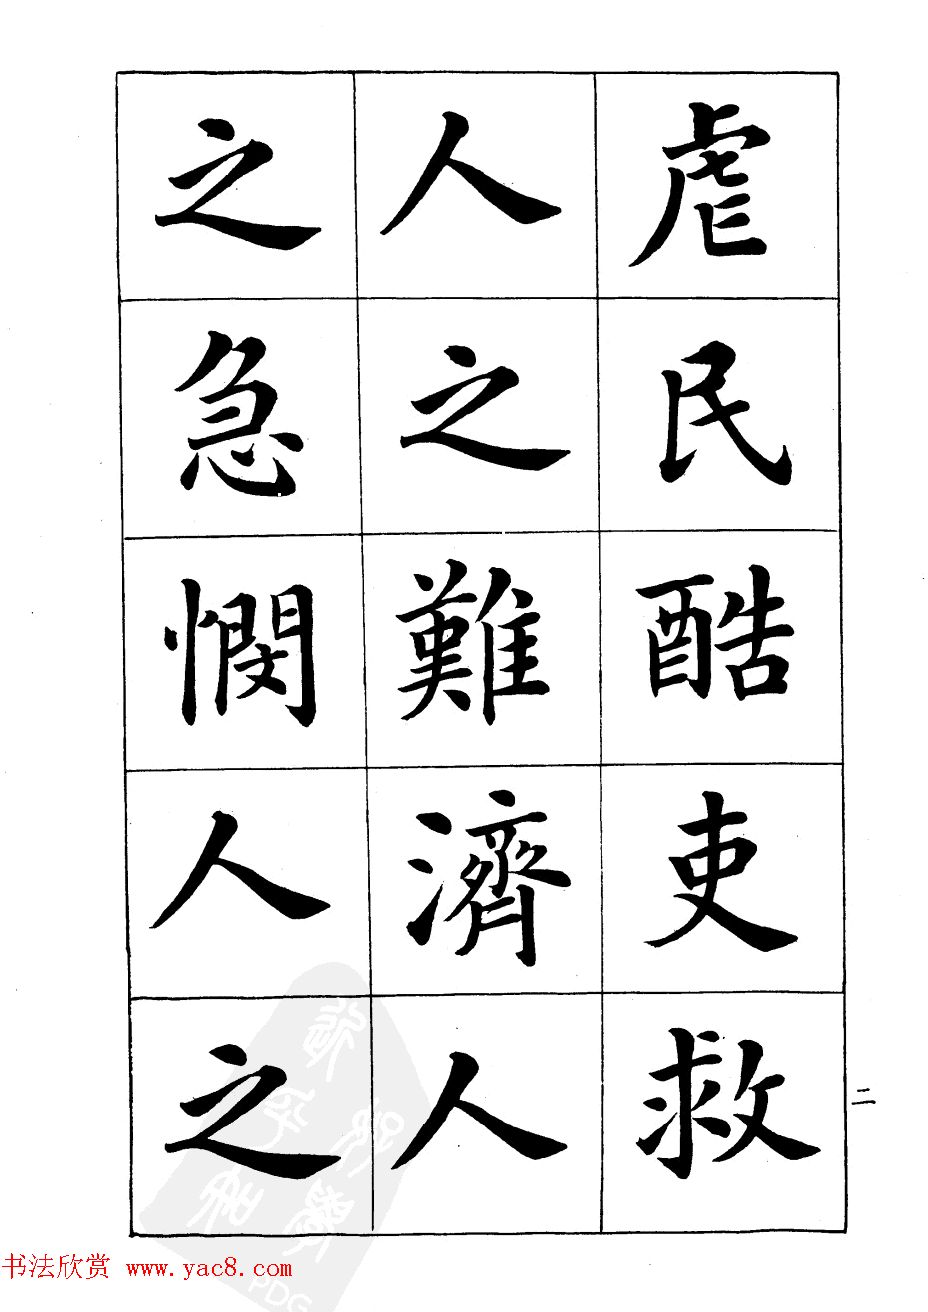 虐民酷吏救
人之難濟人
之急憫人之
二
书法欣赏 www.yac8.com
PDG